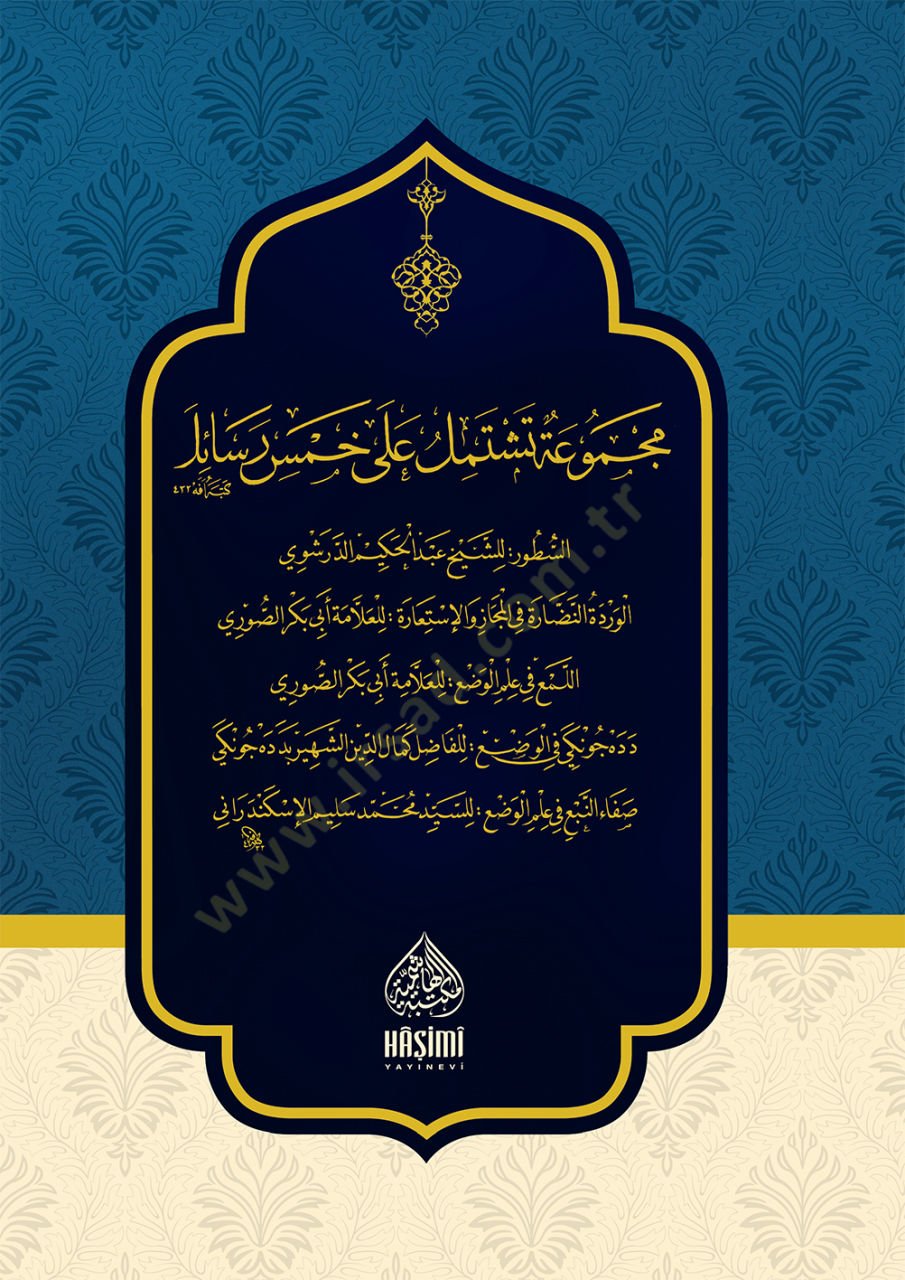 مَجْمُوعَةٌ تَشْتَمِلُ عَلَى خَمْسِ رَسَائِلَ
السُّطُور: لِلشَّيْخِ عَبْدِ الْحَكِيمِ الدَّرَشْوِي
الْوَرْدَةُ النَّضَّارَة فِي الْمَجَازِ وَالْإِسْتِعَارَة: لِلْعَلَّامَة أَبِي بَكْر الصُّورِي
اللُّمَع فِي عِلْمِ الْوَضْعِ: لِلْعَلَّامَةِ أَبِي بَكْر الصُّورِي
دَدَه جُونْكِي فِي الْوَضْع: لِلْفَاضِل كَمَال الدِّين الشَّهِير بِدَدَه جُونْكِي
صَفَاء النَّبْع فِي عِلْمِ الْوَضْع: لِلسَّيِّد مُحَمَّد سَلِيم الْإِسْكَنْدَرَانِي
مكتبة الهاشمية
HÂŞİMİ
YAYINEVİ
www.irsad.com.tr